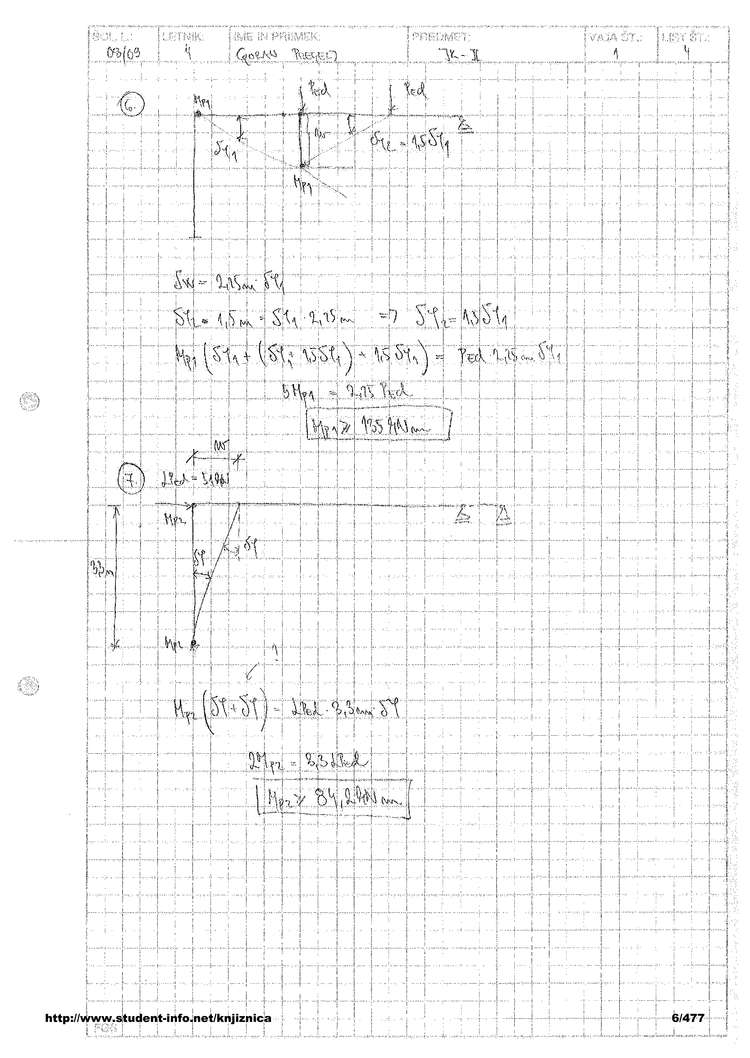 ŠOL. L.: LETNIK: IME IN PRIIMEK: PREDMET: VAJA ŠT.: LIST ŠT.:
08/09 4 GORAN JK - II 1 4
6.
Mp1 PEd PEd
δφ1 W δφ2 = 1,5δφ1
Mp1
δW = 2,25m · δφ1
δφ2 · 1,5m = δφ1 · 2,25m => δφ2 = 1,5δφ1
Mp1 (δφ1 + (δφ1 + 1,5δφ1) + 1,5δφ1) = PEd · 2,25m · δφ1
5Mp1 = 2,25 PEd
Mp1 ≥ 135 kNm
W
7. αPEd = 51kN
Mp2
δφ
δφ
3,3m
Mp2
?
Mp2 (δφ + δφ) = αPEd · 3,3m · δφ
2Mp2 = 3,3 αPEd
Mp2 ≥ 84,2 kNm
http://www.student-info.net/knjiznica 6/477
FGG